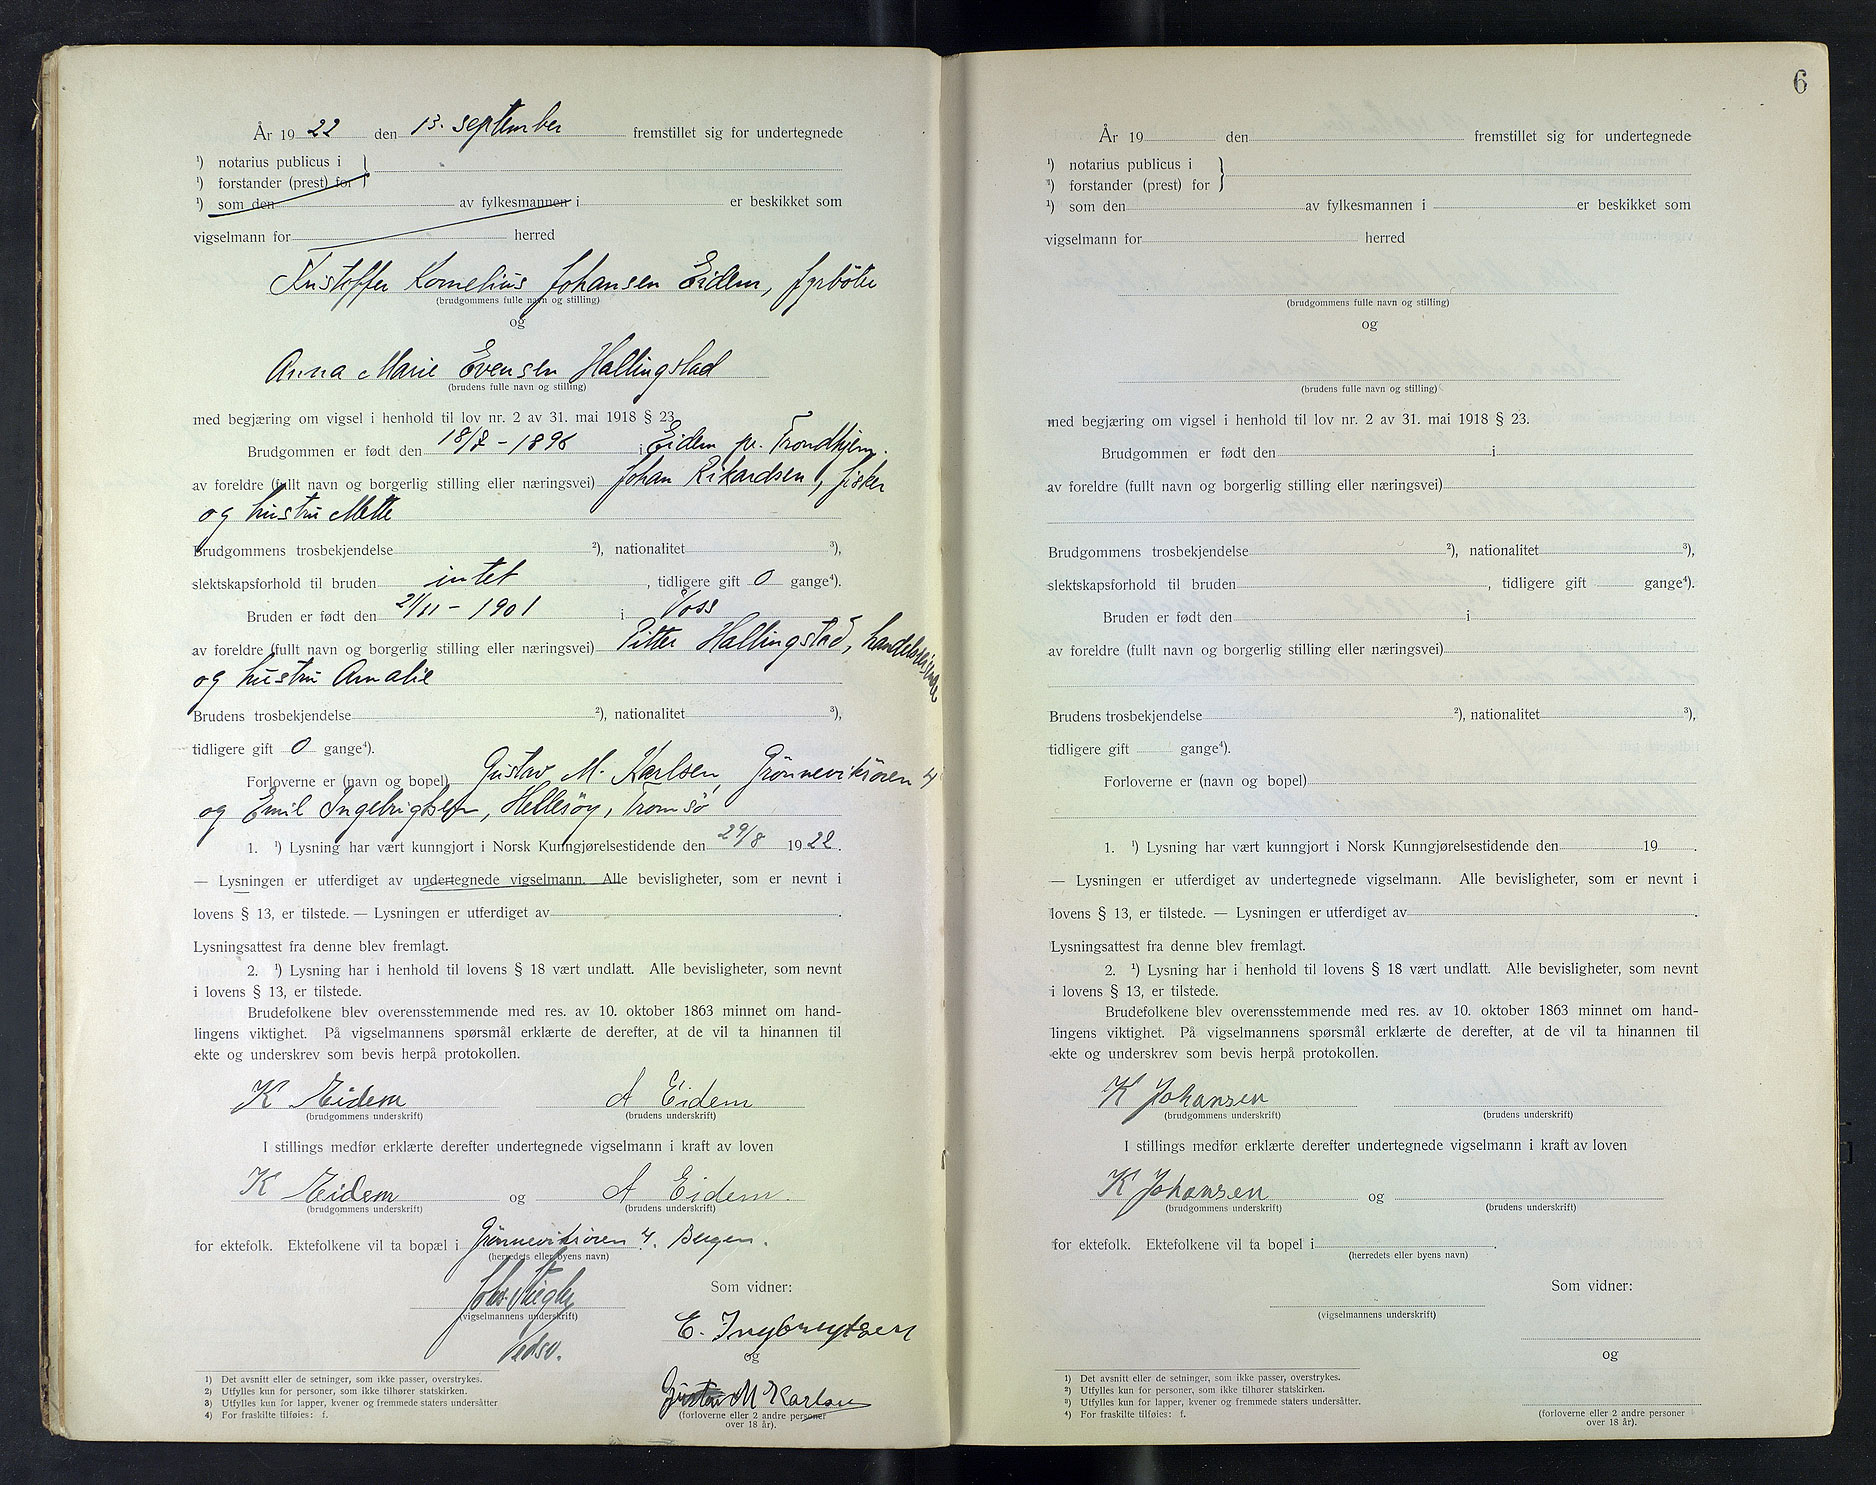 År 1922 den 13. september fremstillet sig for undertegnede
¹) notarius publicus i
¹) forstander (prest) for
¹) som den av fylkesmannen i er beskikket som
vigselmann for herred
Kristoffer Kornelius Johansen Eidem, fyrbøter
(brudgommens fulle navn og stilling)
og
Anna Marie Evensen Hallingstad
(brudens fulle navn og stilling)
med begjæring om vigsel i henhold til lov nr. 2 av 31. mai 1918 § 23.
Brudgommen er født den 18/7 - 1896 i Eidem pr. Trondhjem.
av foreldre (fullt navn og borgerlig stilling eller næringsvei) Johan Rikardsen, fisker
og hustru Mette
Brudgommens trosbekjendelse ²), nationalitet ³),
slektskapsforhold til bruden intet, tidligere gift 0 gange⁴).
Bruden er født den 21/11 - 1901 i Voss
av foreldre (fullt navn og borgerlig stilling eller næringsvei) Pitter Hallingstad, handelsreisende
og hustru Amalie
Brudens trosbekjendelse ²), nationalitet ³),
tidligere gift 0 gange⁴).
Forloverne er (navn og bopel) Gustav M. Karlsen, Grønneviksøren 4
og Emil Ingebrigtsen, Hellesøy, Tromsø
1. ¹) Lysning har vært kunngjort i Norsk Kunngjørelsestidende den 29/8 1922.
— Lysningen er utferdiget av undertegnede vigselmann. Alle bevisligheter, som er nevnt i
lovens § 13, er tilstede. — Lysningen er utferdiget av .
Lysningsattest fra denne blev fremlagt.
2. ¹) Lysning har i henhold til lovens § 18 vært undlatt. Alle bevisligheter, som nevnt
i lovens § 13, er tilstede.
Brudefolkene blev overensstemmende med res. av 10. oktober 1863 minnet om hand-
lingens viktighet. På vigselmannens spørsmål erklærte de derefter, at de vil ta hinannen til
ekte og underskrev som bevis herpå protokollen.
K Eidem A Eidem
(brudgommens underskrift) (brudens underskrift)
I stillings medfør erklærte derefter undertegnede vigselmann i kraft av loven
K Eidem og A Eidem.
(brudgommens underskrift) (brudens underskrift)
for ektefolk. Ektefolkene vil ta bopæl i Grønneviksøren 4. Bergen.
(herredets eller byens navn)
Som vidner:
(vigselmannens underskrift)
E. Ingbrigtsen
og
Gustav M Karlsen
(forloverne eller 2 andre personer
over 18 år).
1) Det avsnitt eller de setninger, som ikke passer, overstrykes.
2) Utfylles kun for personer, som ikke tilhører statskirken.
3) Utfylles kun for lapper, kvener og fremmede staters undersåtter
4) For fraskilte tilføies: f.
6
År 19 den fremstillet sig for undertegnede
¹) notarius publicus i
¹) forstander (prest) for
¹) som den av fylkesmannen i er beskikket som
vigselmann for herred
(brudgommens fulle navn og stilling)
og
(brudens fulle navn og stilling)
med begjæring om vigsel i henhold til lov nr. 2 av 31. mai 1918 § 23.
Brudgommen er født den i
av foreldre (fullt navn og borgerlig stilling eller næringsvei)
Brudgommens trosbekjendelse ²), nationalitet ³),
slektskapsforhold til bruden , tidligere gift gange⁴).
Bruden er født den i
av foreldre (fullt navn og borgerlig stilling eller næringsvei)
Brudens trosbekjendelse ²), nationalitet ³),
tidligere gift gange⁴).
Forloverne er (navn og bopel)
1. ¹) Lysning har vært kunngjort i Norsk Kunngjørelsestidende den 19 .
— Lysningen er utferdiget av undertegnede vigselmann. Alle bevisligheter, som er nevnt i
lovens § 13, er tilstede. — Lysningen er utferdiget av .
Lysningsattest fra denne blev fremlagt.
2. ¹) Lysning har i henhold til lovens § 18 vært undlatt. Alle bevisligheter, som nevnt
i lovens § 13, er tilstede.
Brudefolkene blev overensstemmende med res. av 10. oktober 1863 minnet om hand-
lingens viktighet. På vigselmannens spørsmål erklærte de derefter, at de vil ta hinannen til
ekte og underskrev som bevis herpå protokollen.
K Johansen
(brudgommens underskrift) (brudens underskrift)
I stillings medfør erklærte derefter undertegnede vigselmann i kraft av loven
K Johansen og
(brudgommens underskrift) (brudens underskrift)
for ektefolk. Ektefolkene vil ta bopel i .
(herredets eller byens navn)
Som vidner:
(vigselmannens underskrift)
og
(forloverne eller 2 andre personer
over 18 år).
¹) Det avsnitt eller de setninger, som ikke passer, overstrykes.
²) Utfylles kun for personer, som ikke tilhører statskirken.
³) Utfylles kun for lapper, kvener og fremmede staters undersåtter.
⁴) For fraskilte tilføies: f.